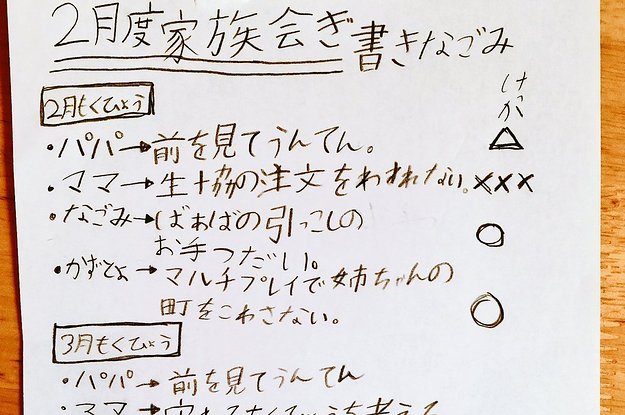 2月度家族会ぎ 書きなごみ
けっか
2月もくひょう
・パパ→前を見てうんてん。 △
・ママ→生協の注文をわすれない。×××
・なごみ→ばぁばの引っこしの
お手つだい。 ○
・かずとよ→マルチプレイで姉ちゃんの
町をこわさない。 ○
3月もくひょう
・パパ→前を見てうんてん
・ママ→